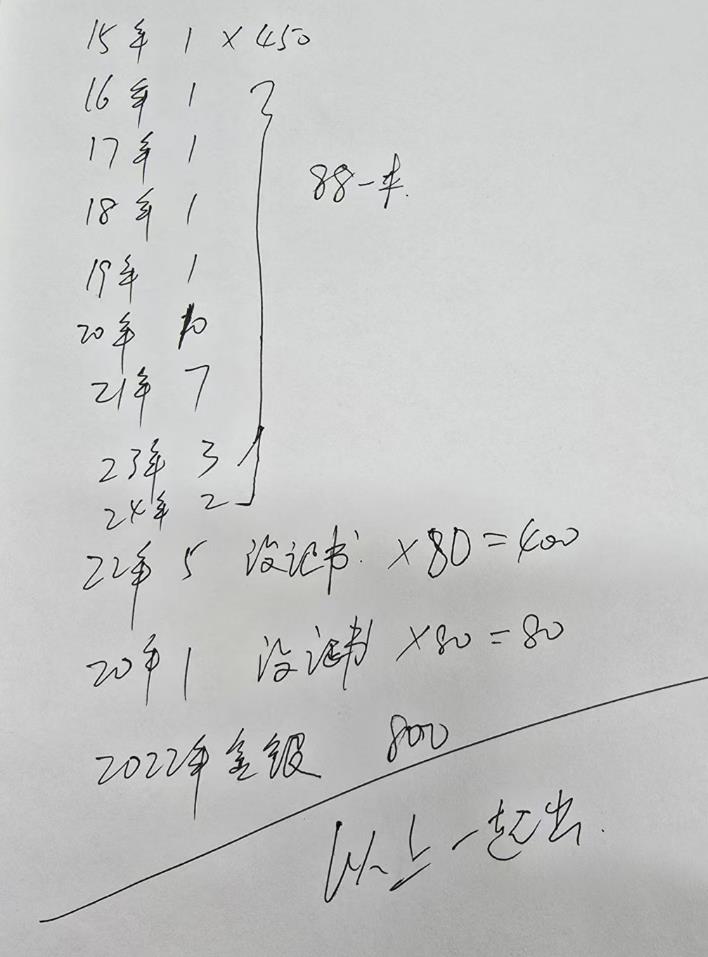 15年 1 × 450
16年 1
17年 1
88一本.
18年 1
19年 1
20年 10
21年 7
23年 3
24年 2
22年 5 没证书 ×80=400
20年 1 没证书 ×80=80
2022年金银 800
以上一起出.